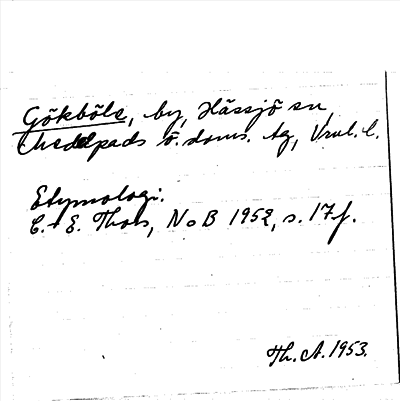 Gökböle, by, Hässjö sn
Medelpads ö. doms. tg, Vnl. l.
Etymologi.
C. + E. Thors, NoB 1952, s. 17f.
Th. A. 1953.